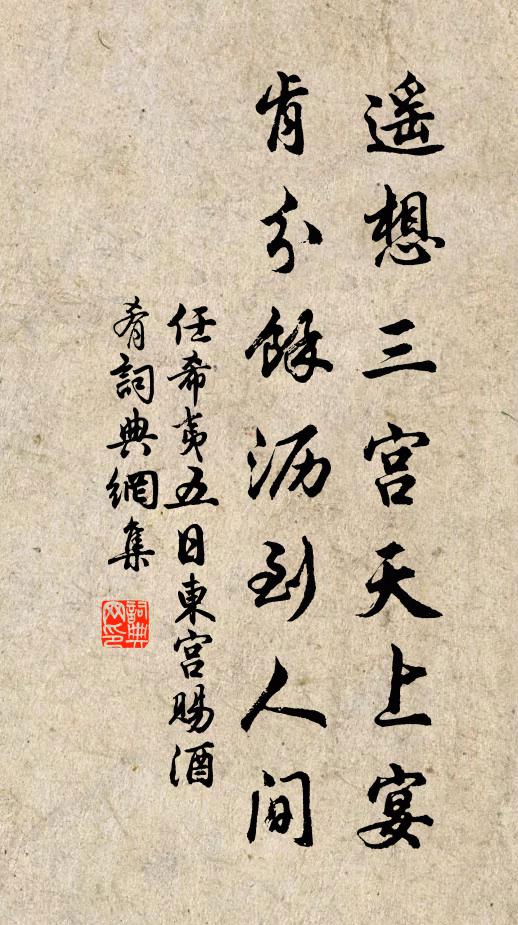 遥想三宫天上宴
肯分餘沥到人间
任希夷五日東宫賜酒
肴詞典網集
詞典
网印